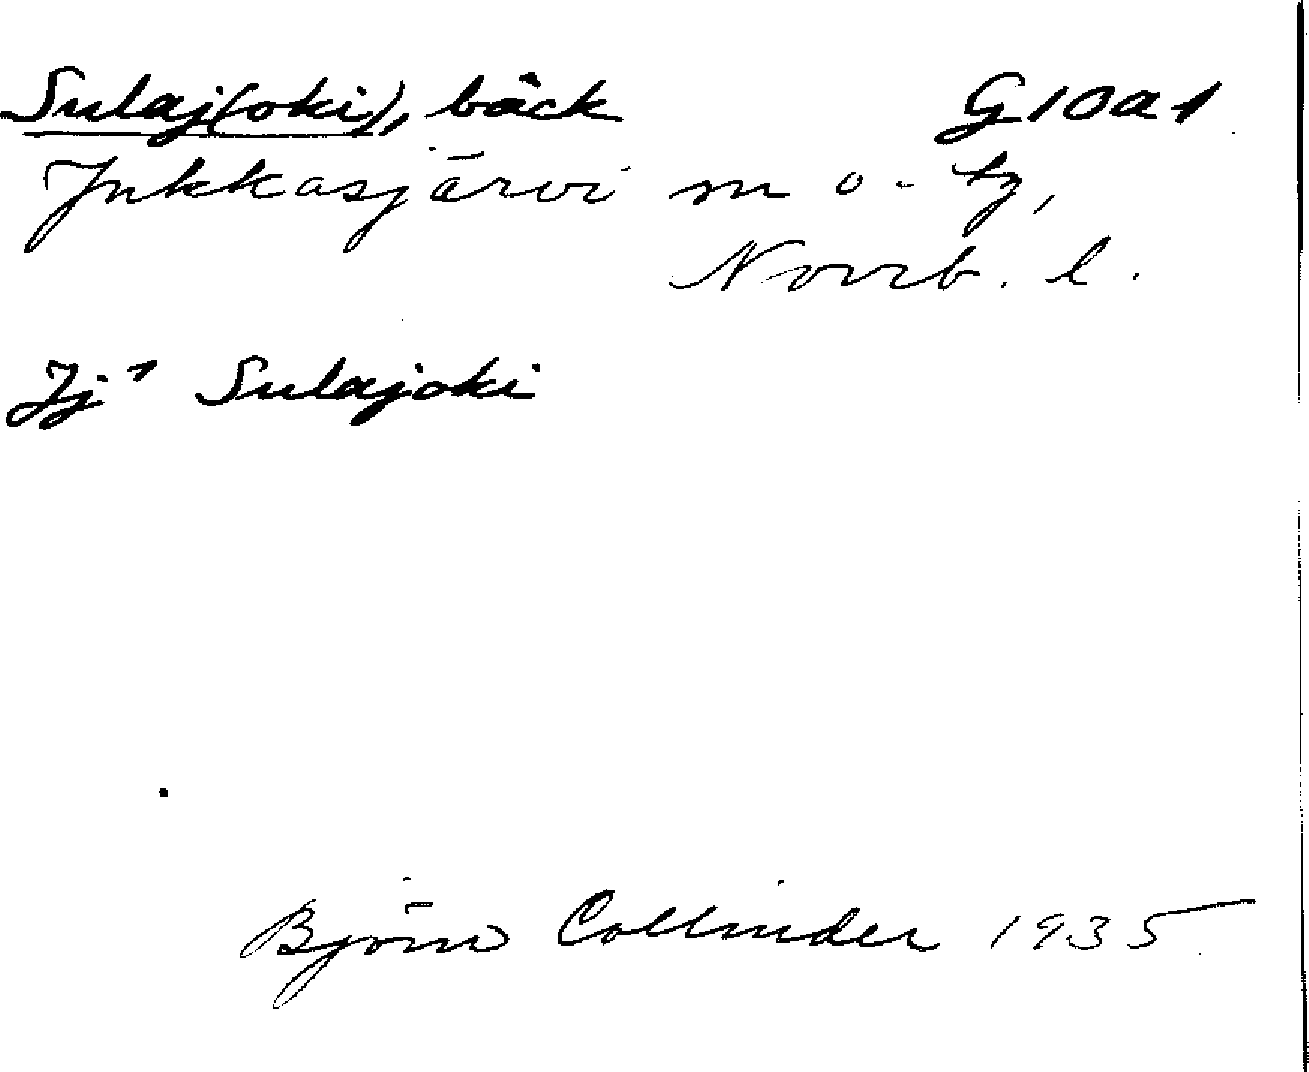 Sulaj(oki), bäck G10a1
Jukkasjärvi sn o. tg,
Norrb. l.
Jj¹ Sulajoki
Björn Collinder 1935